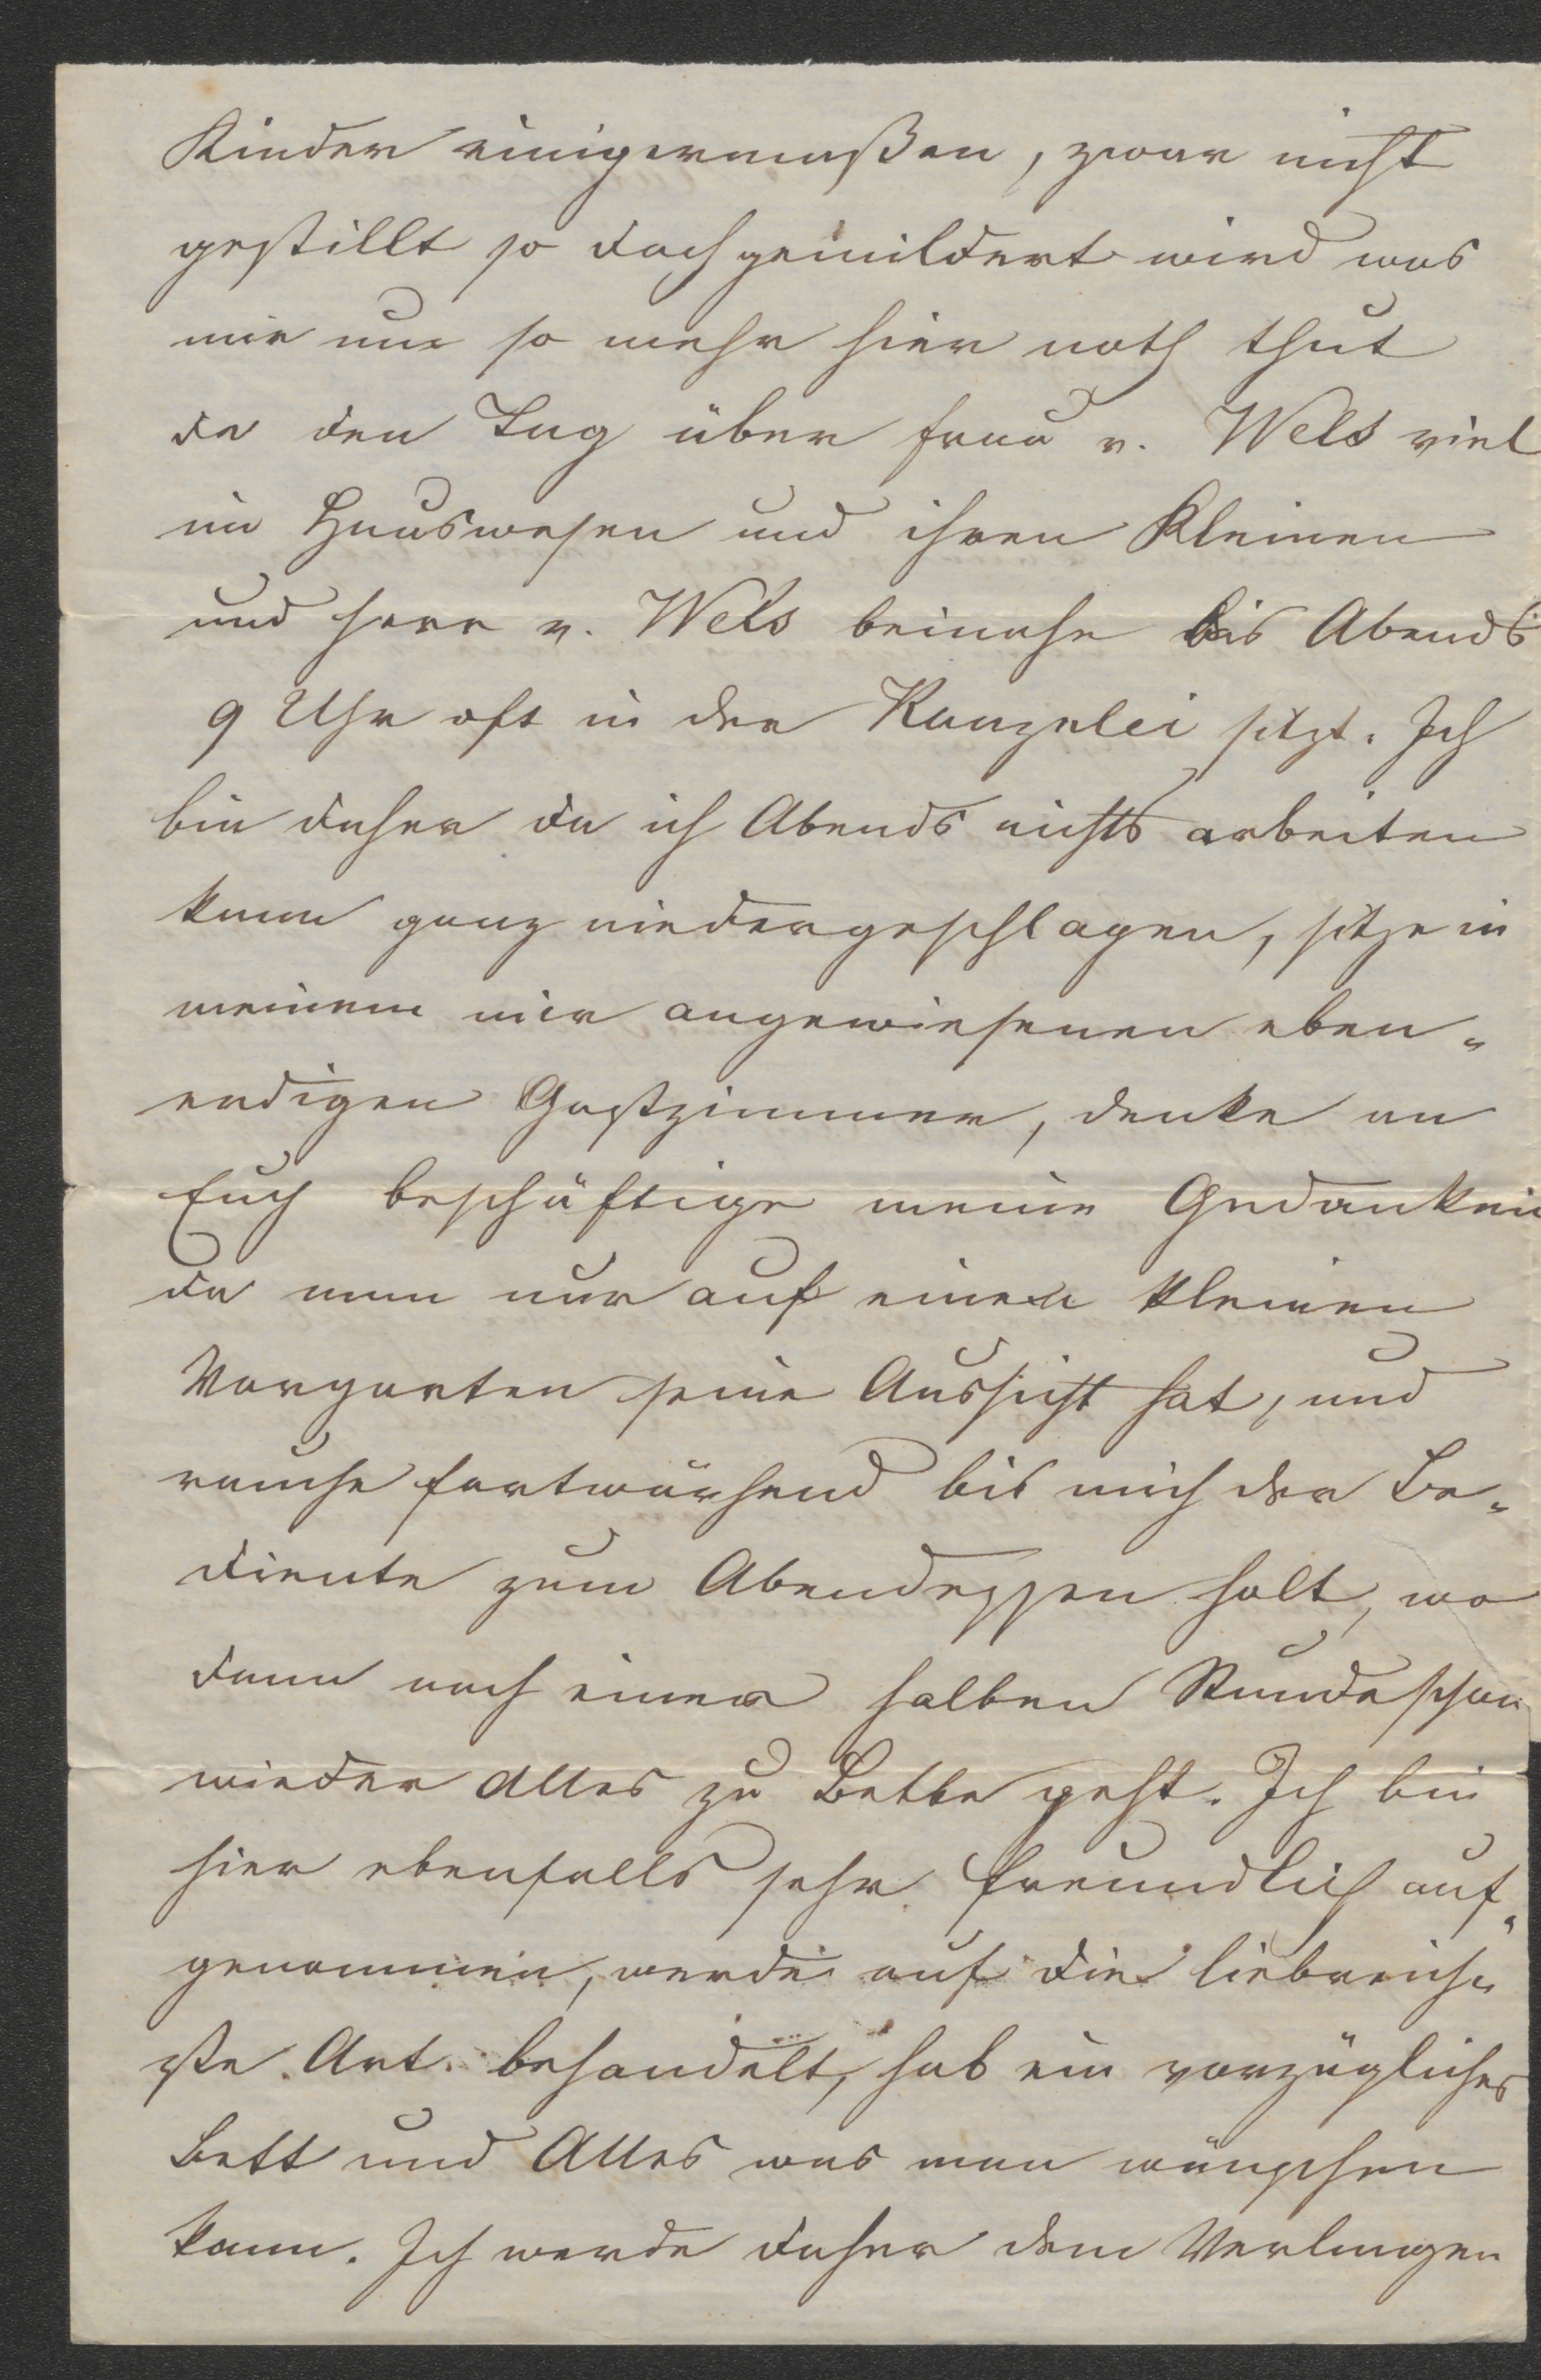 Kinder einigermaßen, zwar nicht
gestillt so doch gemildert wird was
mir um so mehr hier noth thut
da den Tag über Frau v. Wels viel
im Hauswesen und ihren Kleinen
und Herr v. Wels beinahe bis Abends
9 Uhr oft in der Kanzelei sitzt. Ich
bin daher da ich Abends nichts arbeiten
kann ganz niedergeschlagen, sitze in
meinem mir angewiesenen eben„
erdigen Gastzimmer, denke an
Euch beschäftige meine Gedanken
da man nur auf einen kleinen
Vorgarten seine Aussicht hat, und
rauche fortwährend bis mich der Be„
diente zum Abendessen holt, wo
dann nach einer halben Stunde schon
wieder Alles zu Bette geht. Ich bin
hier ebenfalls sehr freundlich auf„
genommen, werde auf die liebreich„
ste Art behandelt, hab ein vorzügliches
Bett und Alles was man wünschen
kann. Ich werde daher dem Verlangen